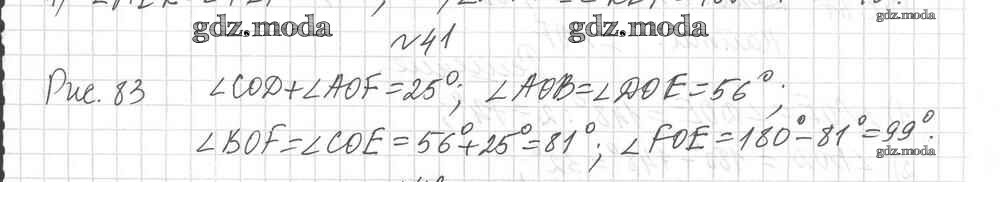 gdz.moda gdz.moda gdz.moda
№41
Рис. 83 ∠COD+∠AOF=25°; ∠AOB=∠DOE=56°;
∠BOF=∠COE=56°+25°=81°; ∠FOE=180°-81°=99°.
gdz.moda